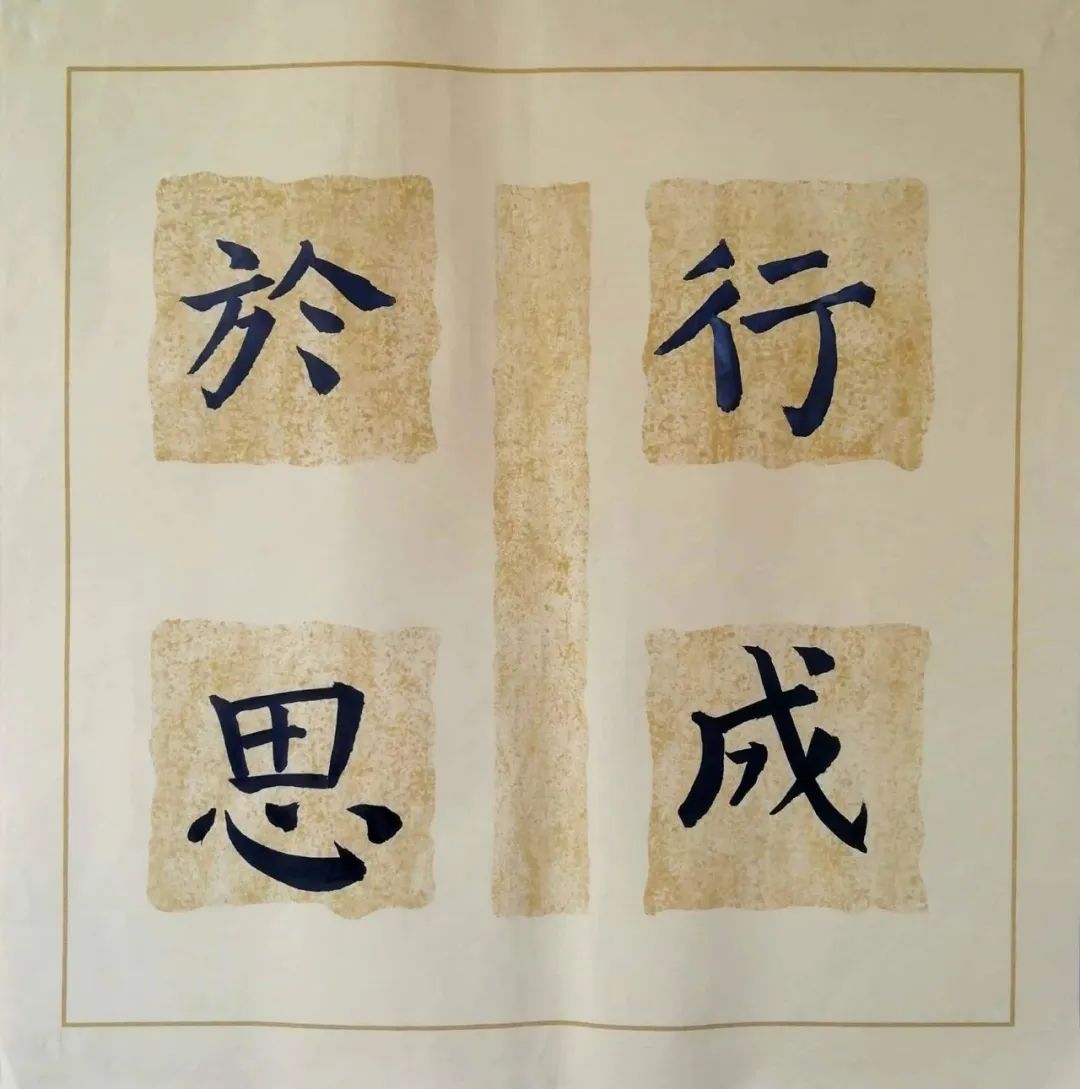 行成
於思